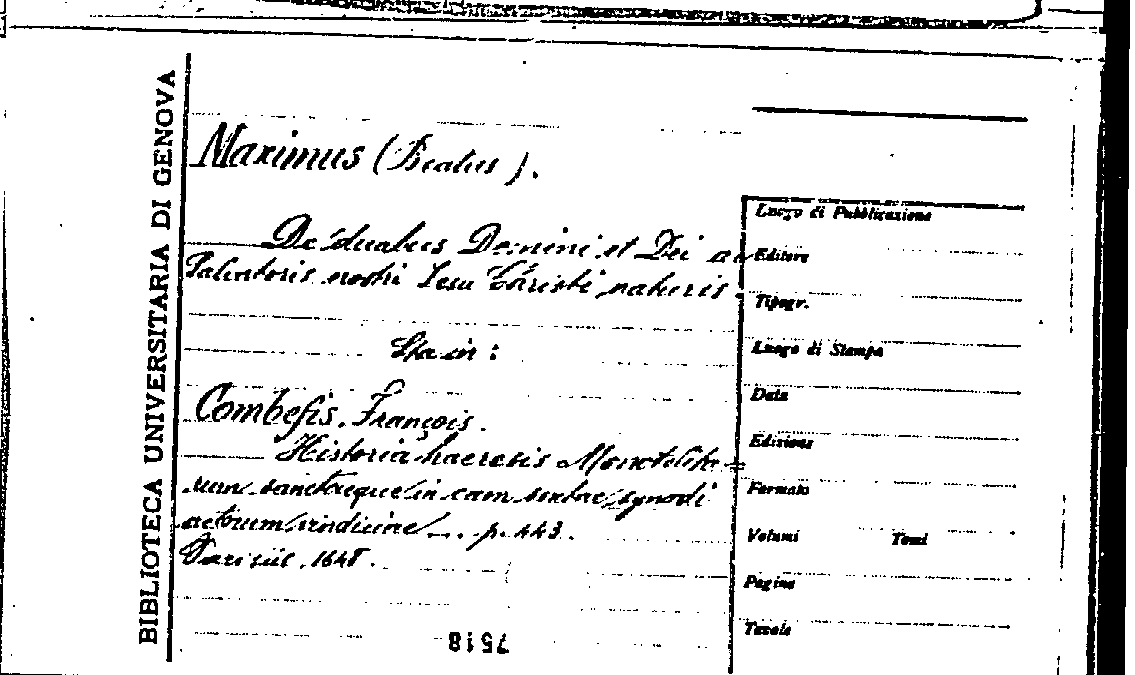 BIBLIOTECA UNIVERSITARIA DI GENOVA
Maximus (Beatus).
De duabus Domini et Dei ac
Salvatoris nostri Iesu Christi naturis.
Sta in:
Combefis, François.
Historia haeresis Monotelita=
rum sanctaeque in eam sextae synodi
actorum vindiciae ... p. 443.
Parisiis. 1648.
7518
Luogo di Pubblicazione
Editore
Tipogr.
Luogo di Stampa
Data
Edizione
Formato
Volumi Tomi
Pagine
Tavole